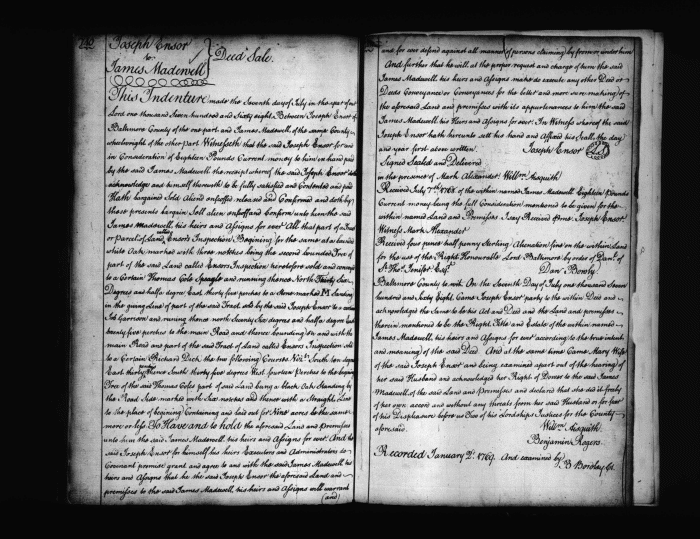 142
Joseph Ensor
to
James Madewell
} Deed Sale.
This Indenture made the Seventh day of July in the year of our
Lord one thousand Seven hundred and Sixty eight, Between Joseph Ensor of
Baltimore County of the one part and James Madewell of the same County
wheelwright of the other part Witnesseth that the said Joseph Ensor for and
in Consideration of Eighteen Pounds Current money to him in hand paid
by the said James Madewell the receipt whereof the said Joseph Ensor doth
acknowledge and himself therewith to be fully satisfied and Contented and paid
Hath bargained Sold Aliend enfeoffed released and Confirmed and doth by
these presents bargain Sell alien enfeoff and Confirm unto him the said
James Madewell, his heirs and Assigns for ever All that part of a Tract
or Parcel of Land called Ensors Inspection Begining for the same at a bounded
white Oak markd with three notches being the second bounded Tree of
part of the said Land called Ensors Inspection heretofore sold and conveyed
to a Certain Thomas Cole and running thence North Thirty Six
Degrees and half a degree East thirty five perches to a stone marked M standing
in the giving line of part of the said Tract sold by the said Joseph Ensor to a certain
Job Garrison and runing thence north Seventy Six degrees and half a degree East
twenty five perches to the main Road and thence bounding on and with the
main Road and part of the said Tract of Land called Ensors Inspection sold
to a Certain Richard Dick, the two following Courses Vizt. South ten degrees
East thirty perches thence South thirty five degrees West fourteen Perches to the begining
Tree of the said Thomas Coles part of said Land being a black Oak Standing by
the Road Side markd with Six notches and thence with a Straight Line
to the place of begining Containing and laid out for Nine acres be the same
more or less. To Have and to hold the aforesaid Land and Premisses
unto him the said James Madewell, his heirs and Assigns for ever. And the
said Joseph Ensor for himself his heirs Executors and Administrators do
Covenant promise grant and agree to and with the said James Madewell his
heirs and Assigns that he the said Joseph Ensor the aforesaid Land and
premisses to the said James Madewell, his heirs and Assigns will warrant
(and)
and for ever defend against all manner of persons claiming by from or under him
And further that he will at the proper request and charge of him the said
James Madewell his heirs and Assigns make do execute any other Deed or
Deeds Conveyance or Conveyances for the better and more sure making of
the aforesaid Land and premisses with its appurtenances to him the said
James Madewell his Heirs and Assigns for ever. In Witness whereof the said
Joseph Ensor hath hereunto sett his hand and Affixed his Seal, the day
and year first above written
Joseph Ensor
Signed Sealed and Deliverd
in the presence of Mark Alexander. Willm. Asquith
Received July 7th. 1768 of the within named James Madewell Eighteen Pounds
Current money being the full Consideration mentioned to be given for the
within named Land and Premisses I say Received Pme. Joseph Ensor.
Witness Mark Alexander
Received four pence half penny Sterling Alienation fine on the within Land
for the use of the Right Honourable Lord Baltimore by order of Danl. of
St. Thos. Jenifer. Esqr.
Danl. Bowly
Baltimore County to wit. On the Seventh Day of July one thousand seven
hundred and Sixty Eight Came Joseph Ensor party to the within Deed and
acknowledged the same to be his Act and Deed and the Land and premisses
therein mentioned to be the Right Title and Estate of the within named
James Madewell, his heirs and Assigns for ever according to the true intent
and meaning of the said Deed. And at the same time Came Mary Wife
of the said Joseph Ensor and being examined apart out of the hearing of
her said Husband and acknowledged her Right of Dower to the said James
Madewell, of the said Land and Premisses and declard that she did it freely
of her own accord and without any threats from her said Husband or for fear
of his Displeasure before us Two of his Lordships Justices for the County
aforesaid.
Willm. Asquith
Benjamin Rogers.
Recorded January 2d. 1769. And examined by
J. B Bordley Cl.